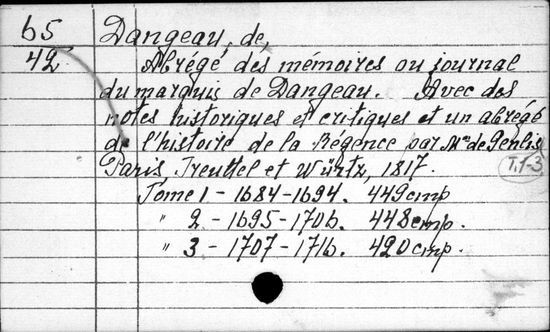 65
42
Dangeau, de,
Abrégé des mémoires ou journal
du marquis de Dangeau. Avec des
notes historiques et critiques et un abrégé
de l'histoire de la Régence par Mme de Genlis
Paris, Treuttel et Würtz, 1817.
T. 1-3
Tome 1 - 1684-1694. 449 cmp
" 2 - 1695-1706. 448 cmp.
" 3 - 1707-1716. 420 cmp.